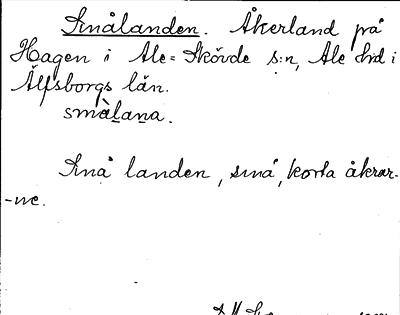 Smålanden. Åkerland på
Hagen i Ale-Skövde s:n, Ale hrd i
Älfsborgs län.
smàlana.
Små landen, små, korta åkrar-
-ne.